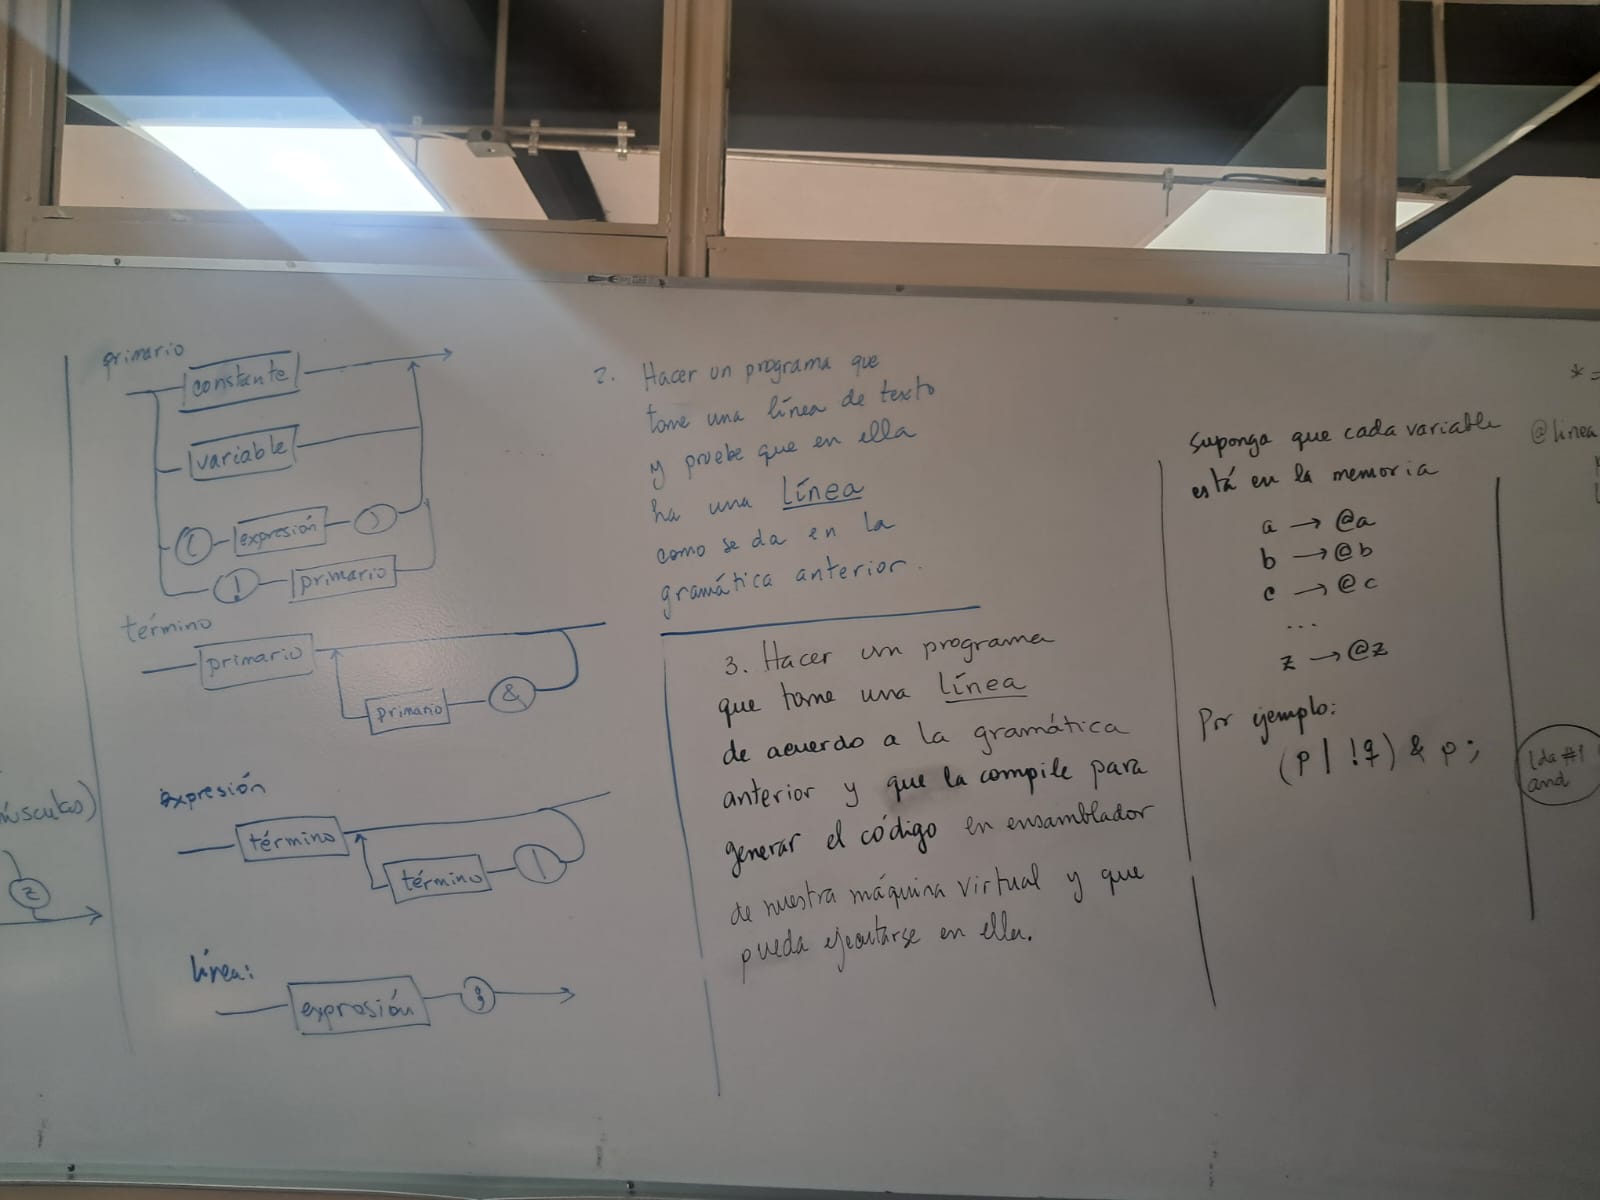 primario
constante
variable
( expresión )
! primario
término
primario
primario &
expresión
término
término |
línea:
expresión ;
z
2. Hacer un programa que
tome una línea de texto
y pruebe que en ella
ha una línea
como se da en la
gramática anterior.
3. Hacer un programa
que tome una línea
de acuerdo a la gramática
anterior y que la compile para
generar el código en ensamblador
de nuestra máquina virtual y que
pueda ejecutarse en ella.
Suponga que cada variable
está en la memoria
a → @a
b → @b
c → @c
...
z → @z
Por ejemplo:
(p | !q) & p;
* =
@linea
lda #1
and